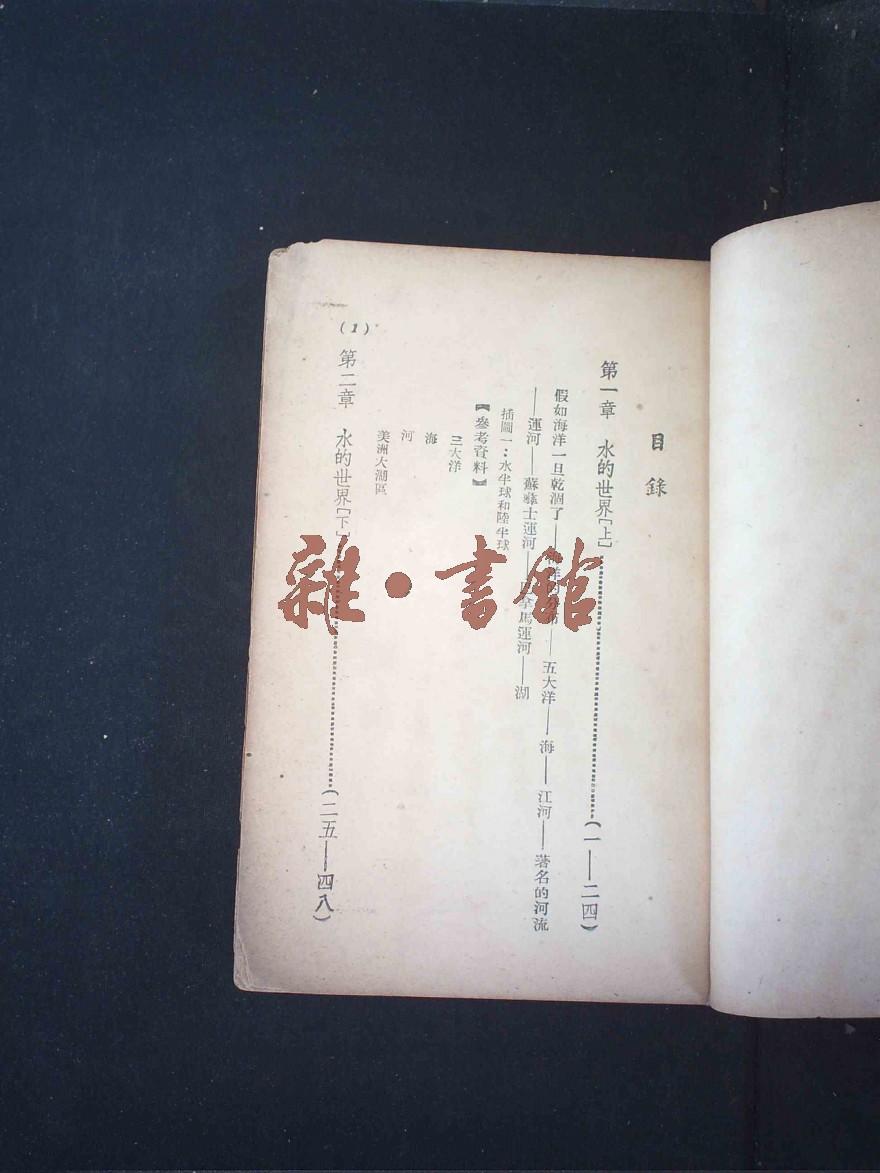 目錄
第一章 水的世界[上]………(一——二四)
假如海洋一旦乾涸了——海洋的分布——五大洋——海——江河——著名的河流
——運河——蘇彝士運河——巴拿馬運河——湖
插圖一：水半球和陸半球
【參考資料】
三大洋
海
河
美洲大湖區
第二章 水的世界[下]………(二五——四八)
(1)
雜·書館